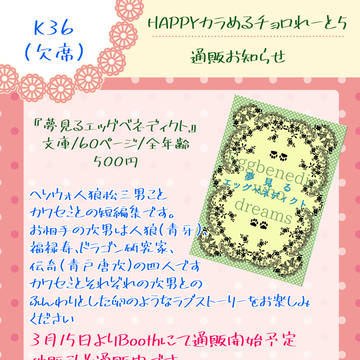 K36
(欠席)
HAPPYカラめるチョロれーと5
通販お知らせ
『夢見るエッグベネディクト』
文庫/60ページ/全年齢
500円
へソウォ人狼松三男こと
カワセことの短編集です。
お相手の次男は人狼(青牙)、
福禄寿、ドラゴン研究家、
伝奇(青戸唐次)の四人です
カワセことそれぞれの次男との
ふんわりとした卵のようなラブストーリーをお楽しみ
ください
3月15日よりBoothにて通販開始予定
ggbenedi
夢見る
エッグベネディクト
dreams